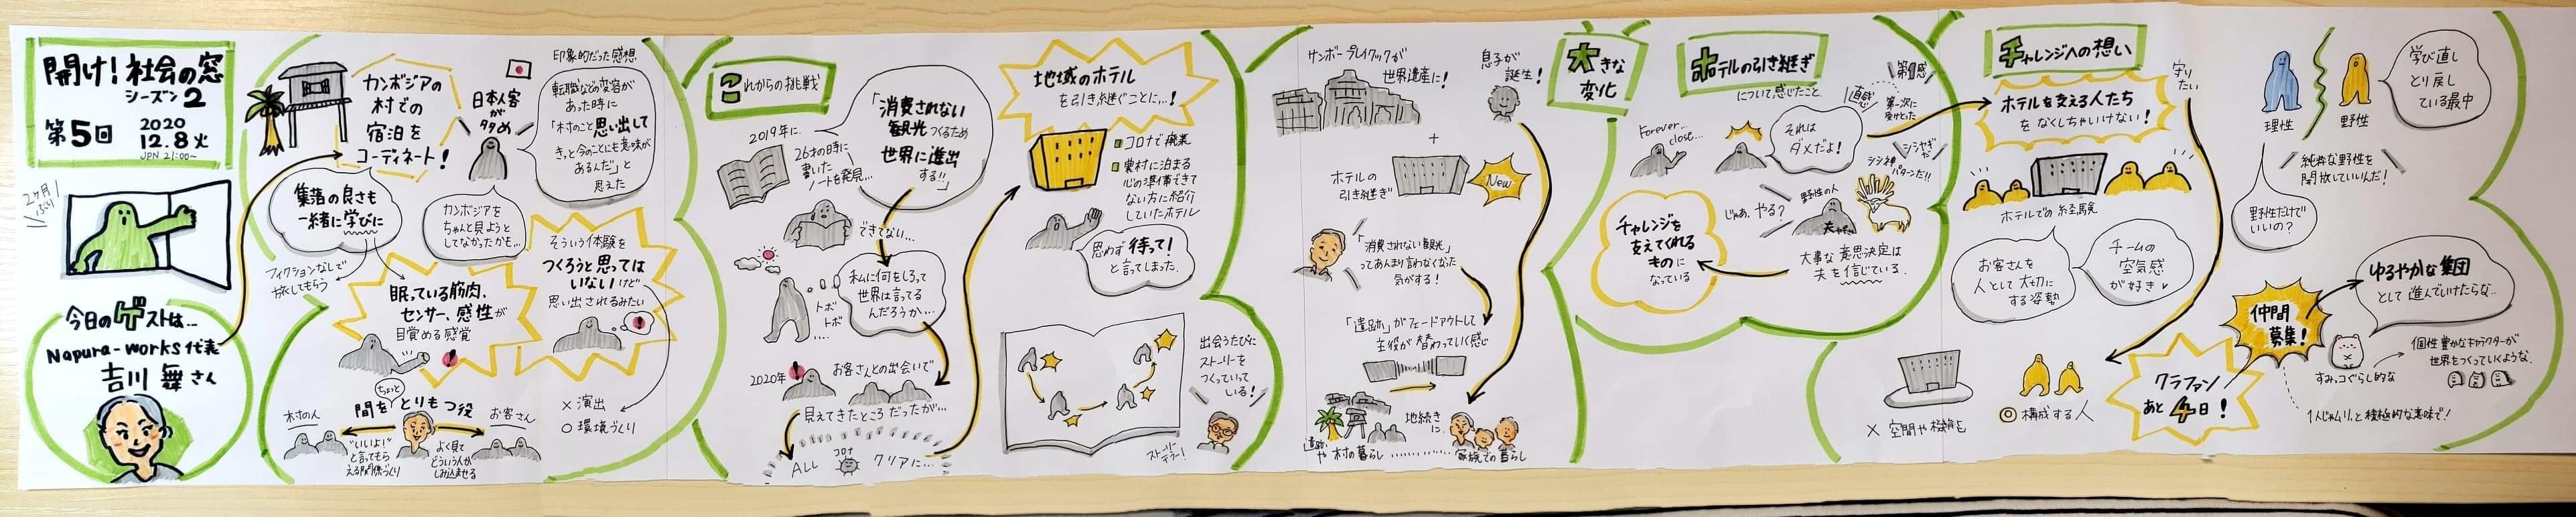 開け!社会の窓
シーズン2
第5回
2020
12.8火
JPN 21:00~
2ヶ月
ぶり
今日のゲストは…
Napura-works代表
吉川 舞さん
カンボジアの
村での
宿泊を
コーディネート!
日本人客
が
多め
印象的だった感想
転職などの変容が
あった時に
「村のこと思い出して
きっと今のことにも意味が
あるんだ」と
思えた
集落の良さも
一緒に学びに
カンボジアを
ちゃんと見ようと
してなかったかも…
フィクションなしで
旅してもらう
眠っている筋肉、
センサー、感性が
目覚める感覚
そういう体験を
つくろうと思っては
いないけど
思い出されるみたい
ちょっと
間をとりもつ役
村の人
お客さん
"いいよ!"
と言ってもら
える関係づくり
よく見て
どういう人か
しみ込ませる
× 演出
○ 環境づくり
これからの挑戦
2019年に
26才の時に
書いた
ノートを発見…
「消費されない
観光つくるため
世界に進出
する!!」
できてない…
トボ
トボ
私に何をしろって
世界は言ってる
んだろうか…
2020年
お客さんとの出会いで
見えてきたところだったが…
ALL
コロナ
クリアに…
地域のホテル
を引き継ぐことに…!
コロナで廃業
農村に泊まる
心の準備できて
ない方に紹介
していたホテル
思わず待って!
と言ってしまった
出会うたびに
ストーリーを
つくっていって
いる!
ストーリー
テラー!
サンボープレイクックが
世界遺産に!
息子が
誕生!
+
ホテルの
引き継ぎ
New
「消費されない観光」
ってあんまり言わなくなった
気がする!
「遺跡」がフェードアウトして
主役が替わっていく感じ
遺跡
や村の暮らし
地続き
に
家族での暮らし
大きな
変化
ホテルの引き継ぎ
について感じたこと
第1感
直感
第一次に
受けとった
Forever
close…
それは
ダメだよ!
シシ神
パターンだ!!
じゃあ、やる?
野性の人
夫
大事な意思決定は
夫を信じている
チャレンジを
支えてくれる
ものに
なっている
チャレンジへの想い
守り
たい
ホテルを支える人たち
をなくしちゃいけない!
ホテルでの経験
お客さんを
人として大切に
する姿勢
チームの
空気感
が好き
× 空間や機能を
◎ 構成する人
クラファン
あと4日!
理性
野性
学び直し
とり戻し
ている最中
純粋な野性を
開放していいんだ!
野性だけで
いいの?
仲間
募集!
ゆるやかな集団
として進んでいけたらな…
すみっコぐらし的な
個性豊かなキャラクターが
世界をつくっていくような
1人じゃムリ、と積極的な意味で!